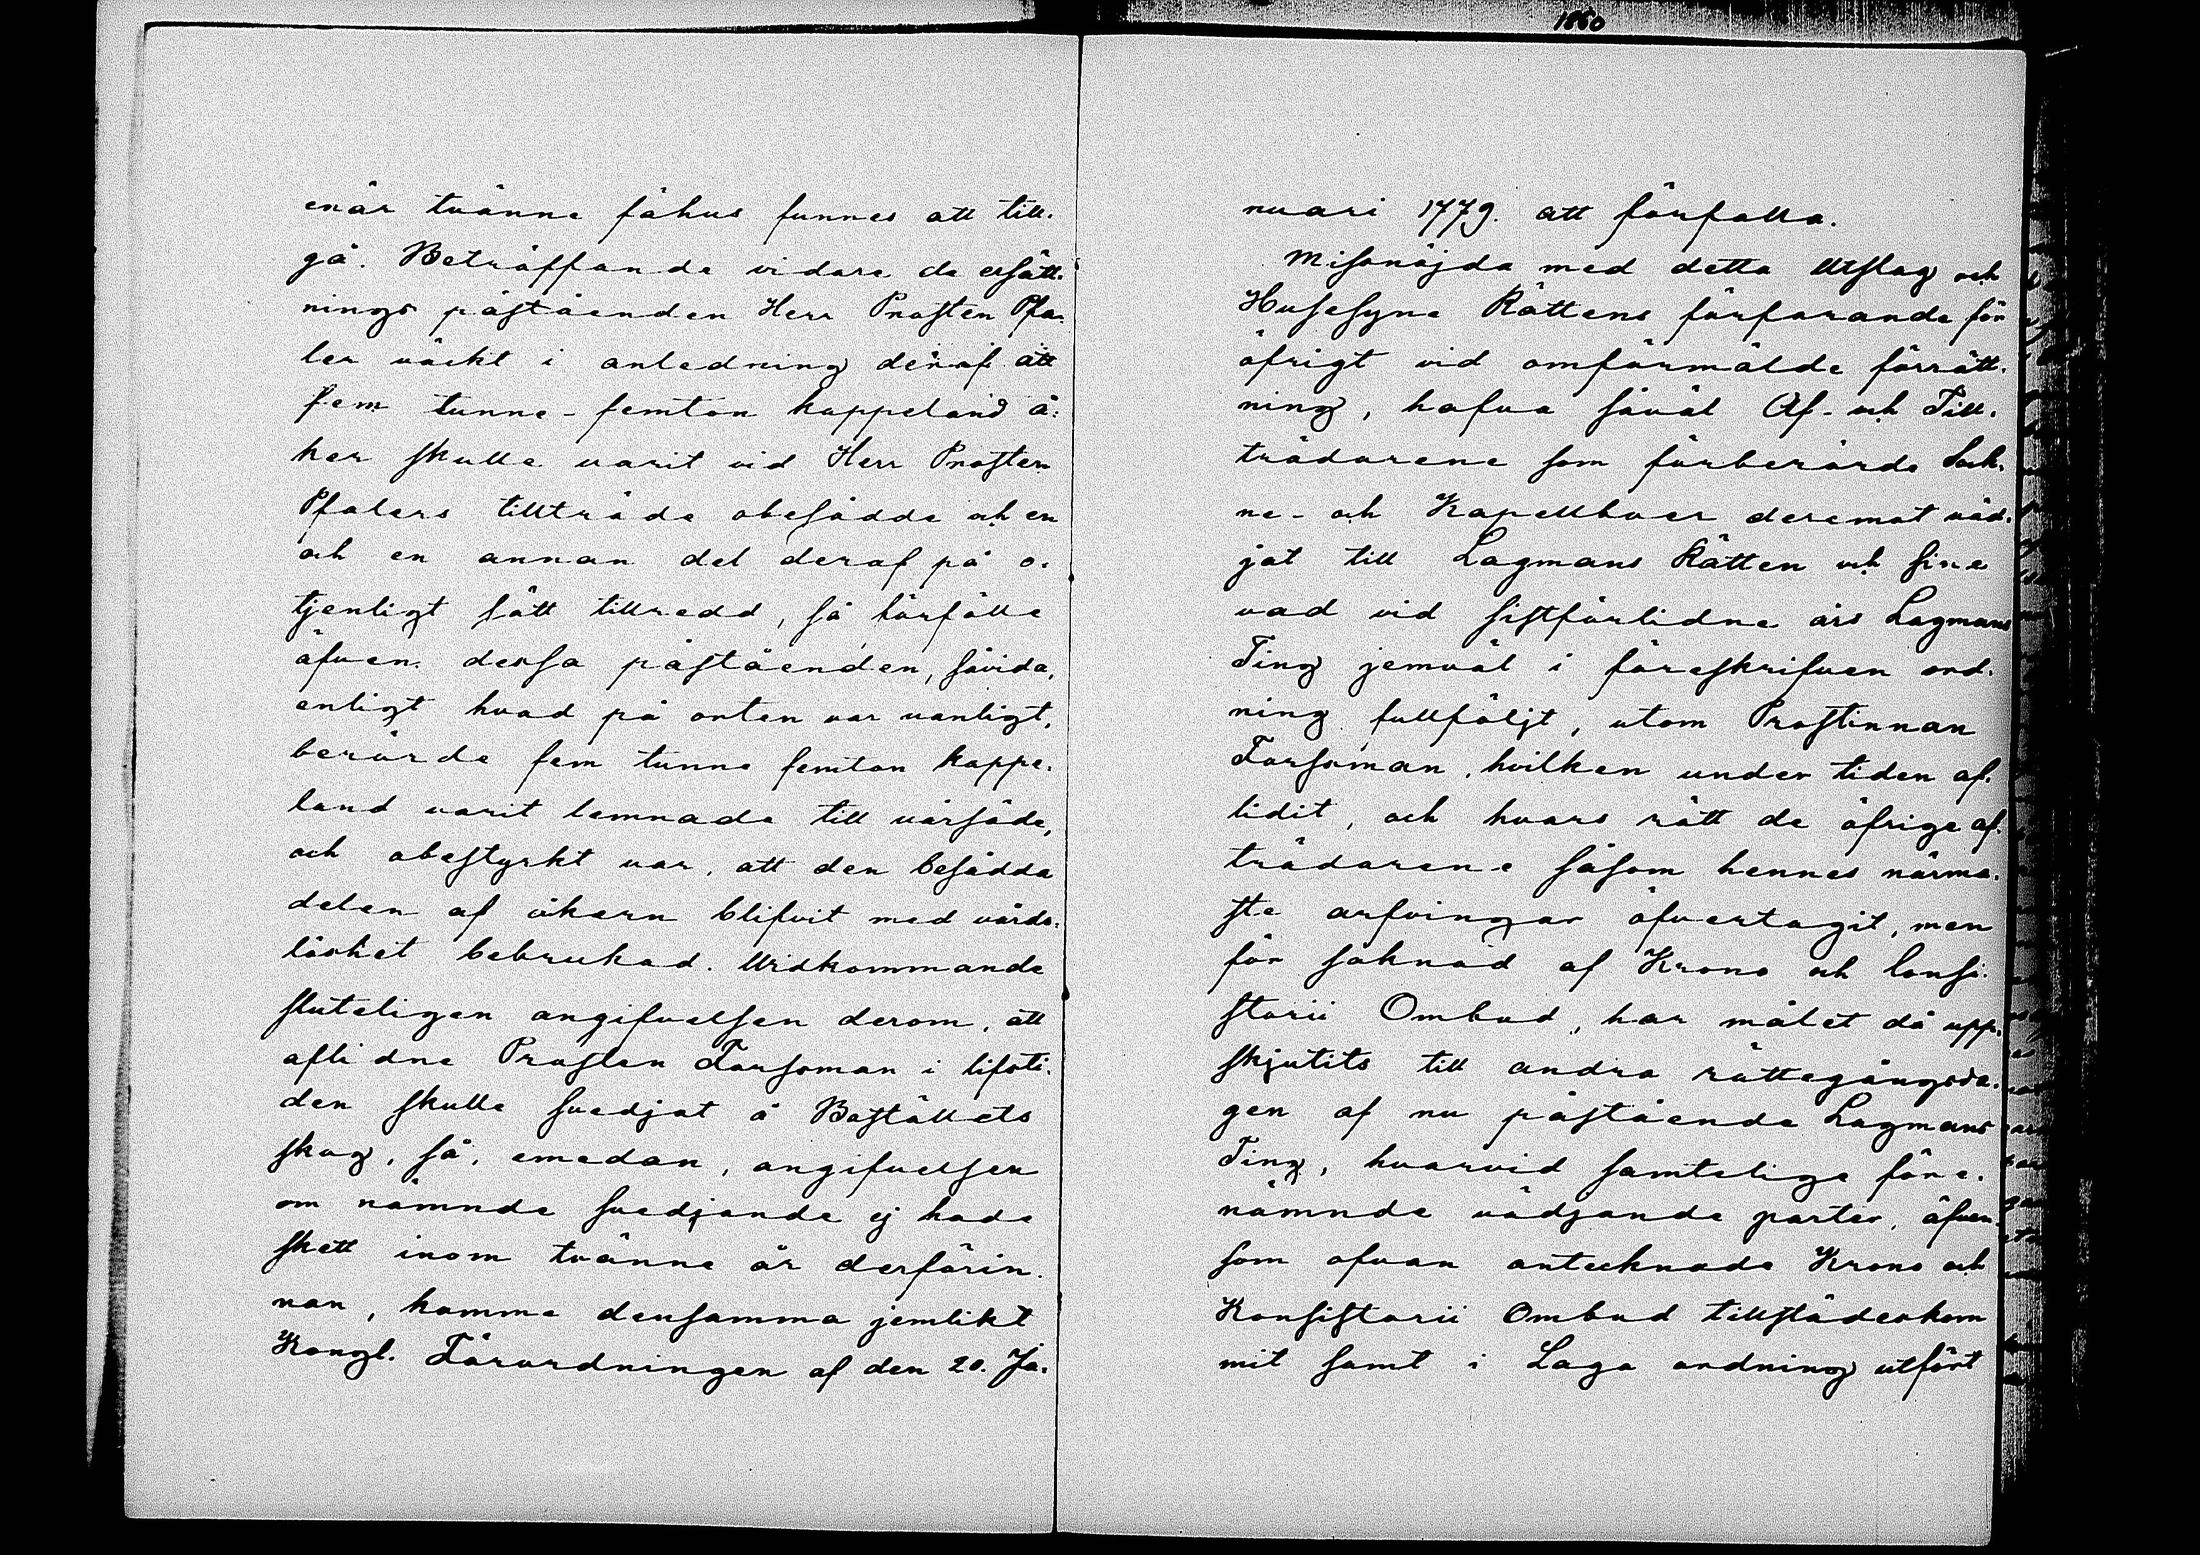 1860
enär tvänne fähus funnes att till-
gå. Beträffande vidare de ersätt-
nings påståenden Herr Prosten Pfa-
ler väckt i anledning deraf att
fem tunne-femton kappeland å-
ker skulle varit vid Herr Prosten
Pfalers tillträde obesådde och en
och en annan del deraf på o-
tjenligt sätt tillredd, så förfölle
äfven dessa påståenden, såvida,
enligt hvad på orten var vanligt,
berörde fem tunne femton kappe-
land varit lemnade till vårsäde,
och obestyrkt var, att den besådda
delen af åkern blifvit med vårds-
löshet bebrukad. Vidkommande
sluteligen angifvelsen derom, att
aflidne Prosten Forssman i lifsti-
den skulle svedjat å Boställets
skog, så, emedan, angifvelsen
om nämnde svedjande ej hade
skett inom tvänne år derförin-
nan, komme densamma jemlikt
Kongl. Förordningen af den 20. Ja-
nuari 1779. att förfalla.
Missnöjda med detta Utslag och
Husesyne Rättens förfarande för
öfrigt vid omförmälde förrätt-
ning, hafva såväl Af- och Till-
trädarene som förberörde Sock-
ne- och Kapellboer deremot väd-
jat till Lagmans Rätten och sine
vad vid sistförlidne års Lagmans
Ting jemväl i föreskrifven ord-
ning fullföljt, utom Prostinnan
Forssman, hvilken under tiden af-
lidit, och hvars rätt de öfrige af-
trädarene såsom hennes närma-
ste arfvingar öfvertagit, men
för saknad af Krono och Consi-
storii Ombud, har målet då upp-
skjutits till andra rättegångsda-
gen af nu påstående Lagmans
Ting, hvarvid samtelige före-
nämnde vädjande parter, äfven-
som ofvan antecknade Krono och
Konsistorii Ombud tillstädeskom
mit samt i Laga ordning utfört